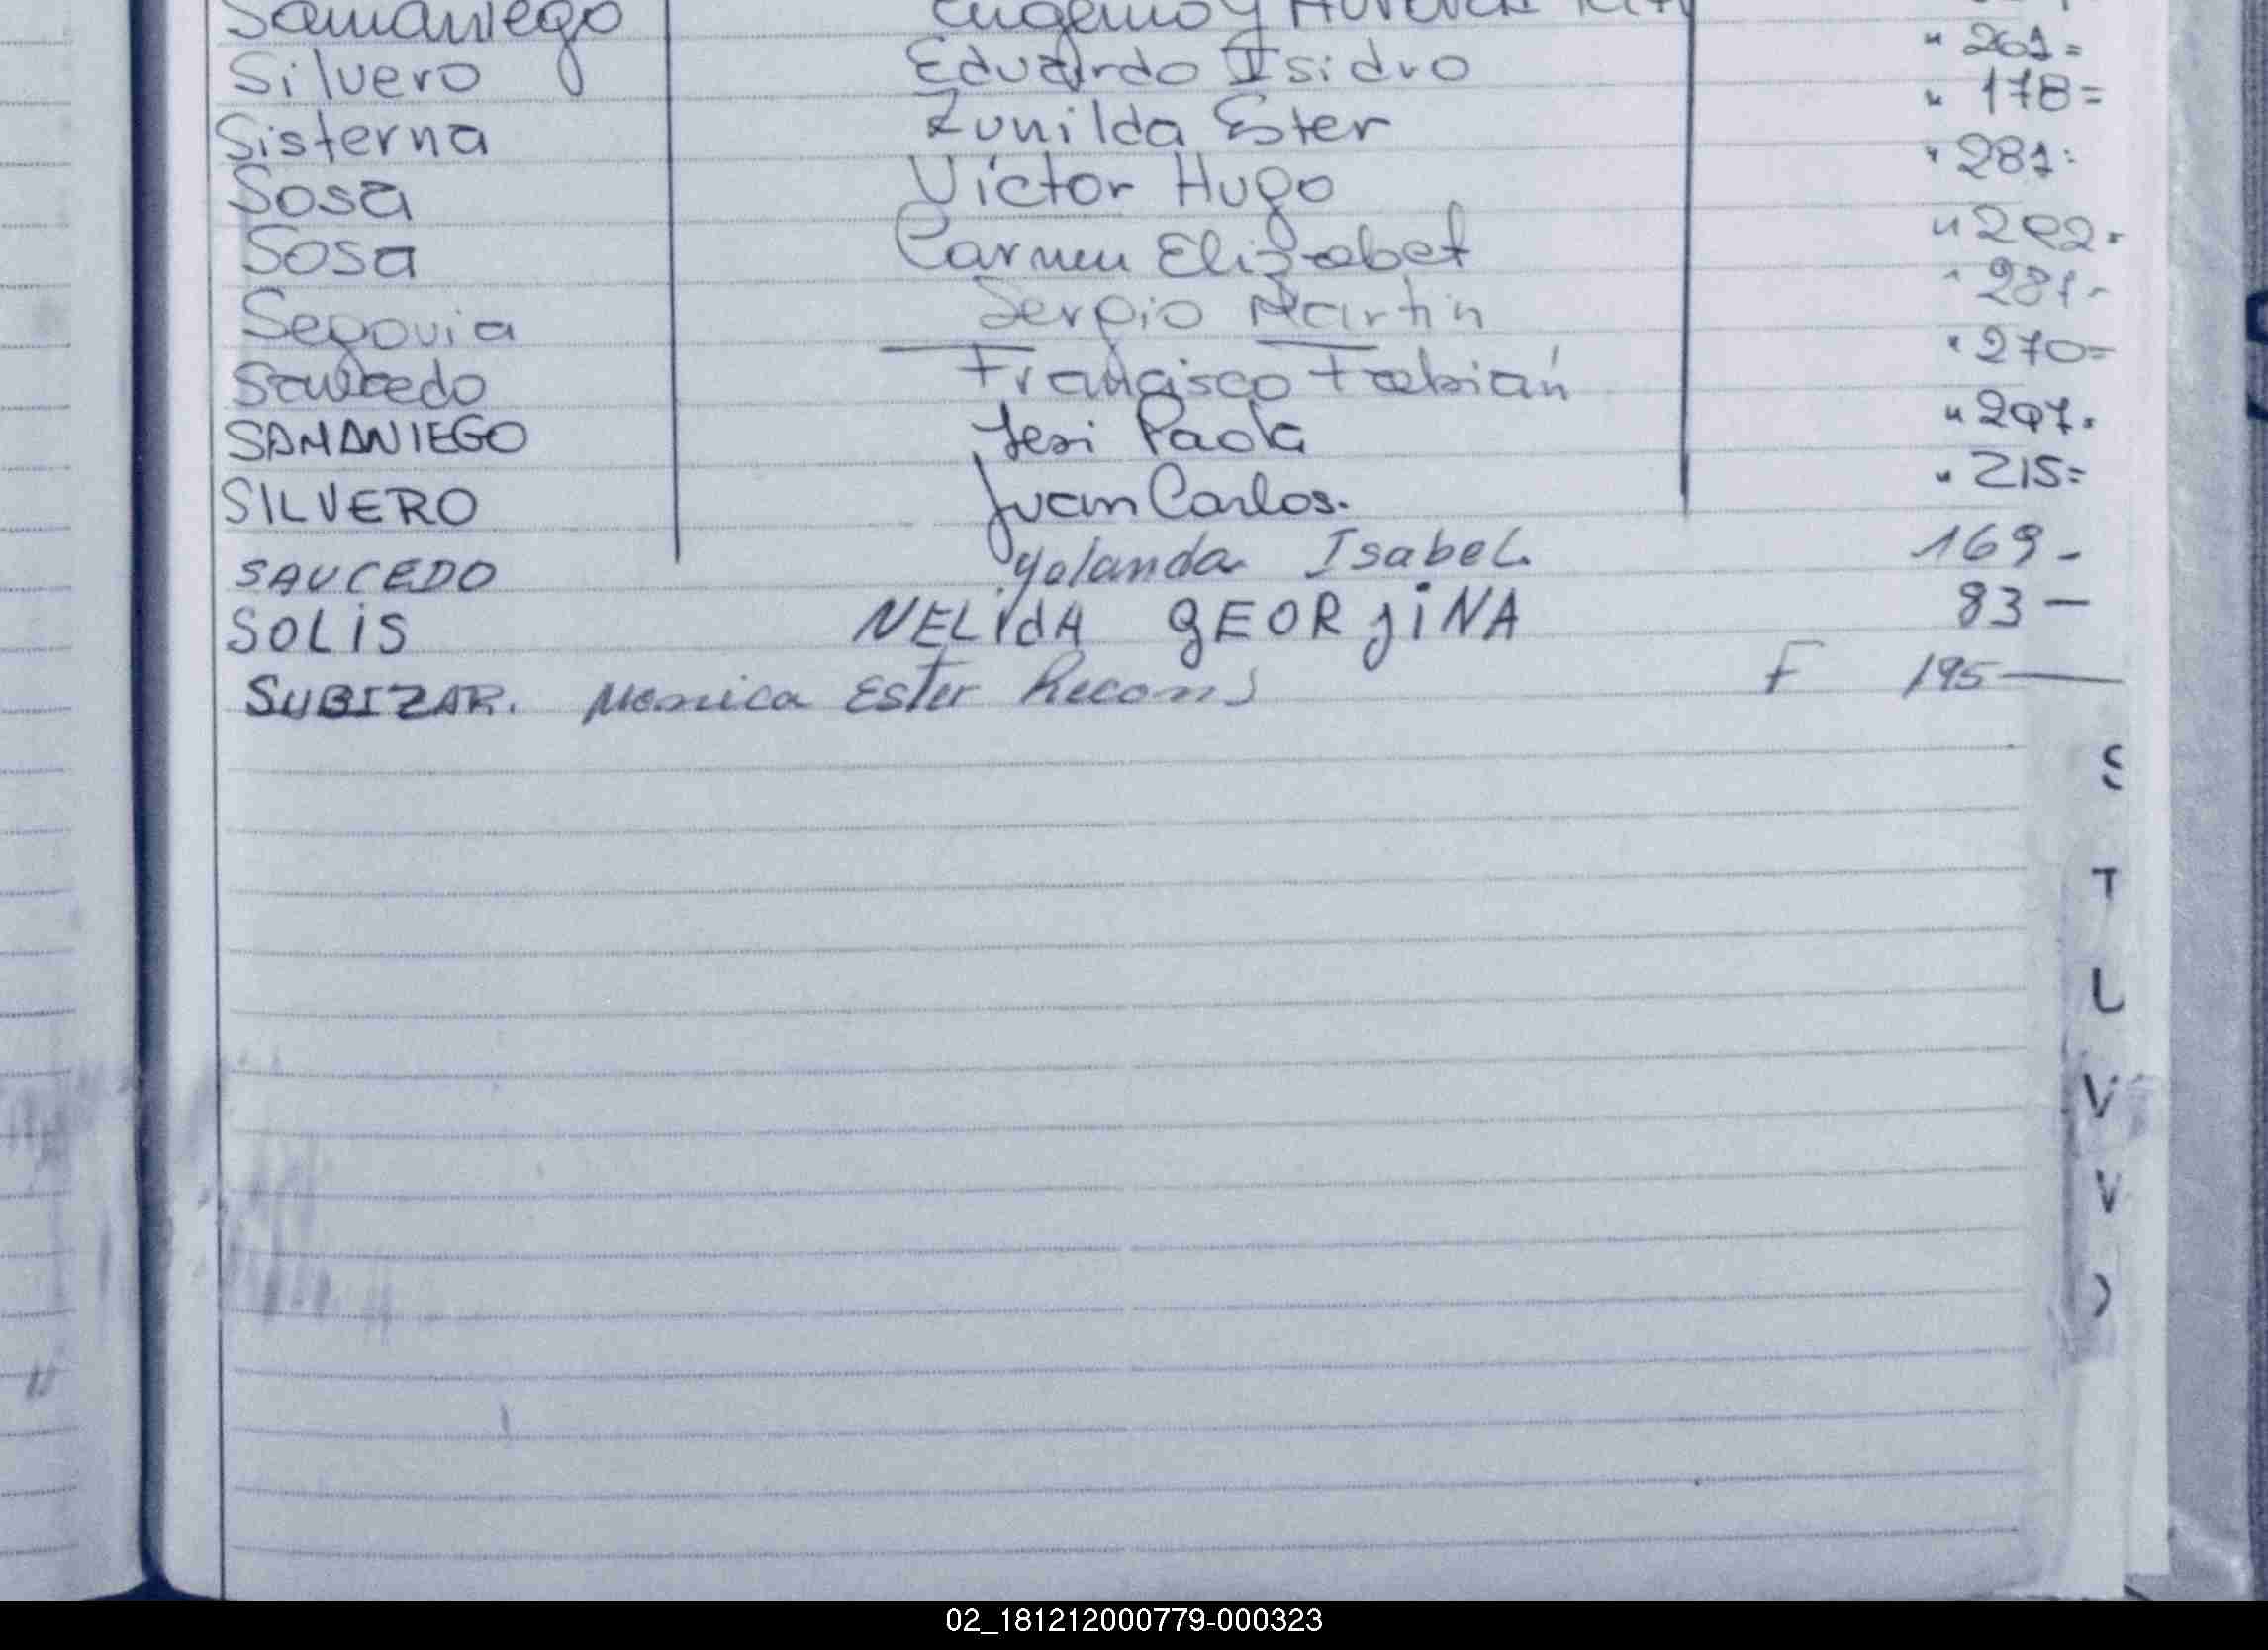 Samaniego Eugenio y
Silvero Eduardo Isidro " 261=
Sisterna Zunilda Ester " 178=
Sosa Victor Hugo " 281=
Sosa Carmen Elizabet "
Segovia Sergio Martin " 281-
Saucedo Francisco Fabián " 270=
SAMANIEGO Yesi Paola " 297.
SILVERO Juan Carlos. " 215=
SAUCEDO Yolanda Isabel. 169-
SOLIS NELIDA GEORJINA 83 —
SUBIZAR. Monica Ester F 195 —
S
T
U
V
V
02_181212000779-000323